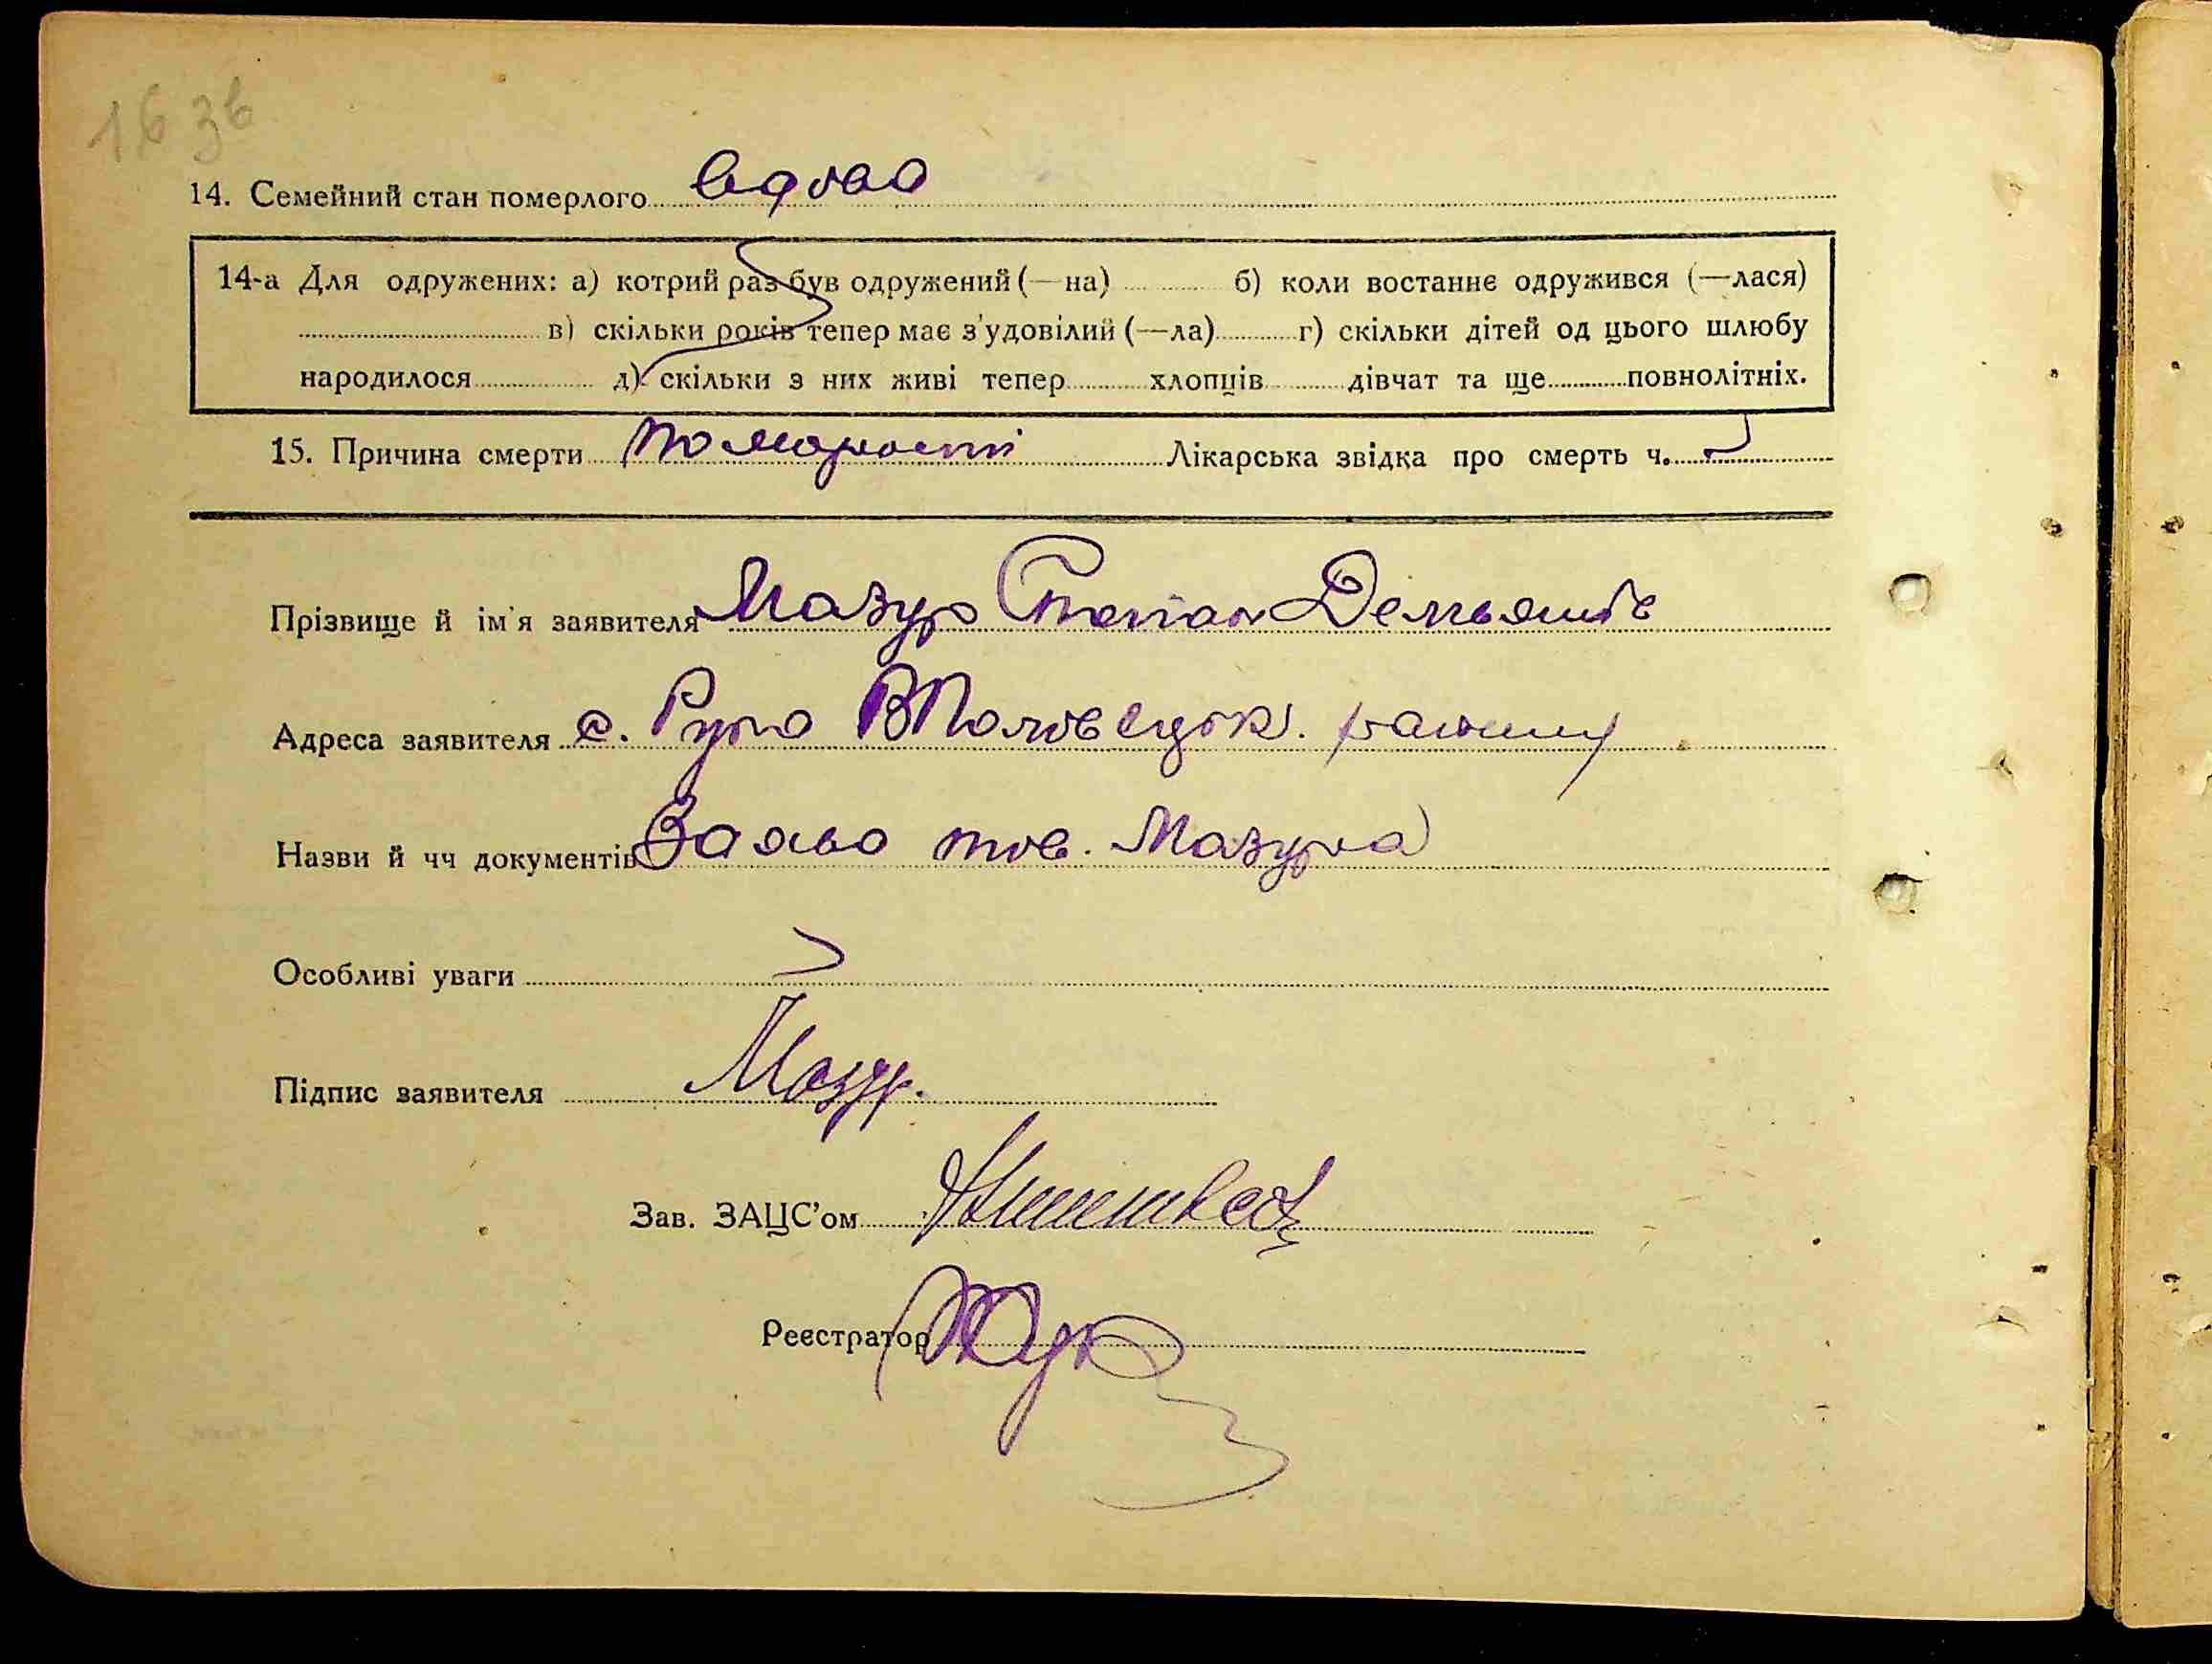 16 зв
14. Семейний стан померлого вдова
14-а Для одружених: а) котрий раз був одружений (—на) б) коли востаннє одружився (—лася)
в) скільки років тепер має з'удовілий (—ла) г) скільки дітей од цього шлюбу
народилося д) скільки з них живі тепер хлопців дівчат та ще повнолітніх.
15. Причина смерти по старости Лікарська звідка про смерть ч.
Прізвище й ім'я заявителя Мазур Степан Демьянів
Адреса заявителя с. Рута В Половецьк. району
Назви й чч документів Заява тов. Мазура
Особливі уваги
Підпис заявителя Мазур.
Зав. ЗАЦС'ом
Реєстратор